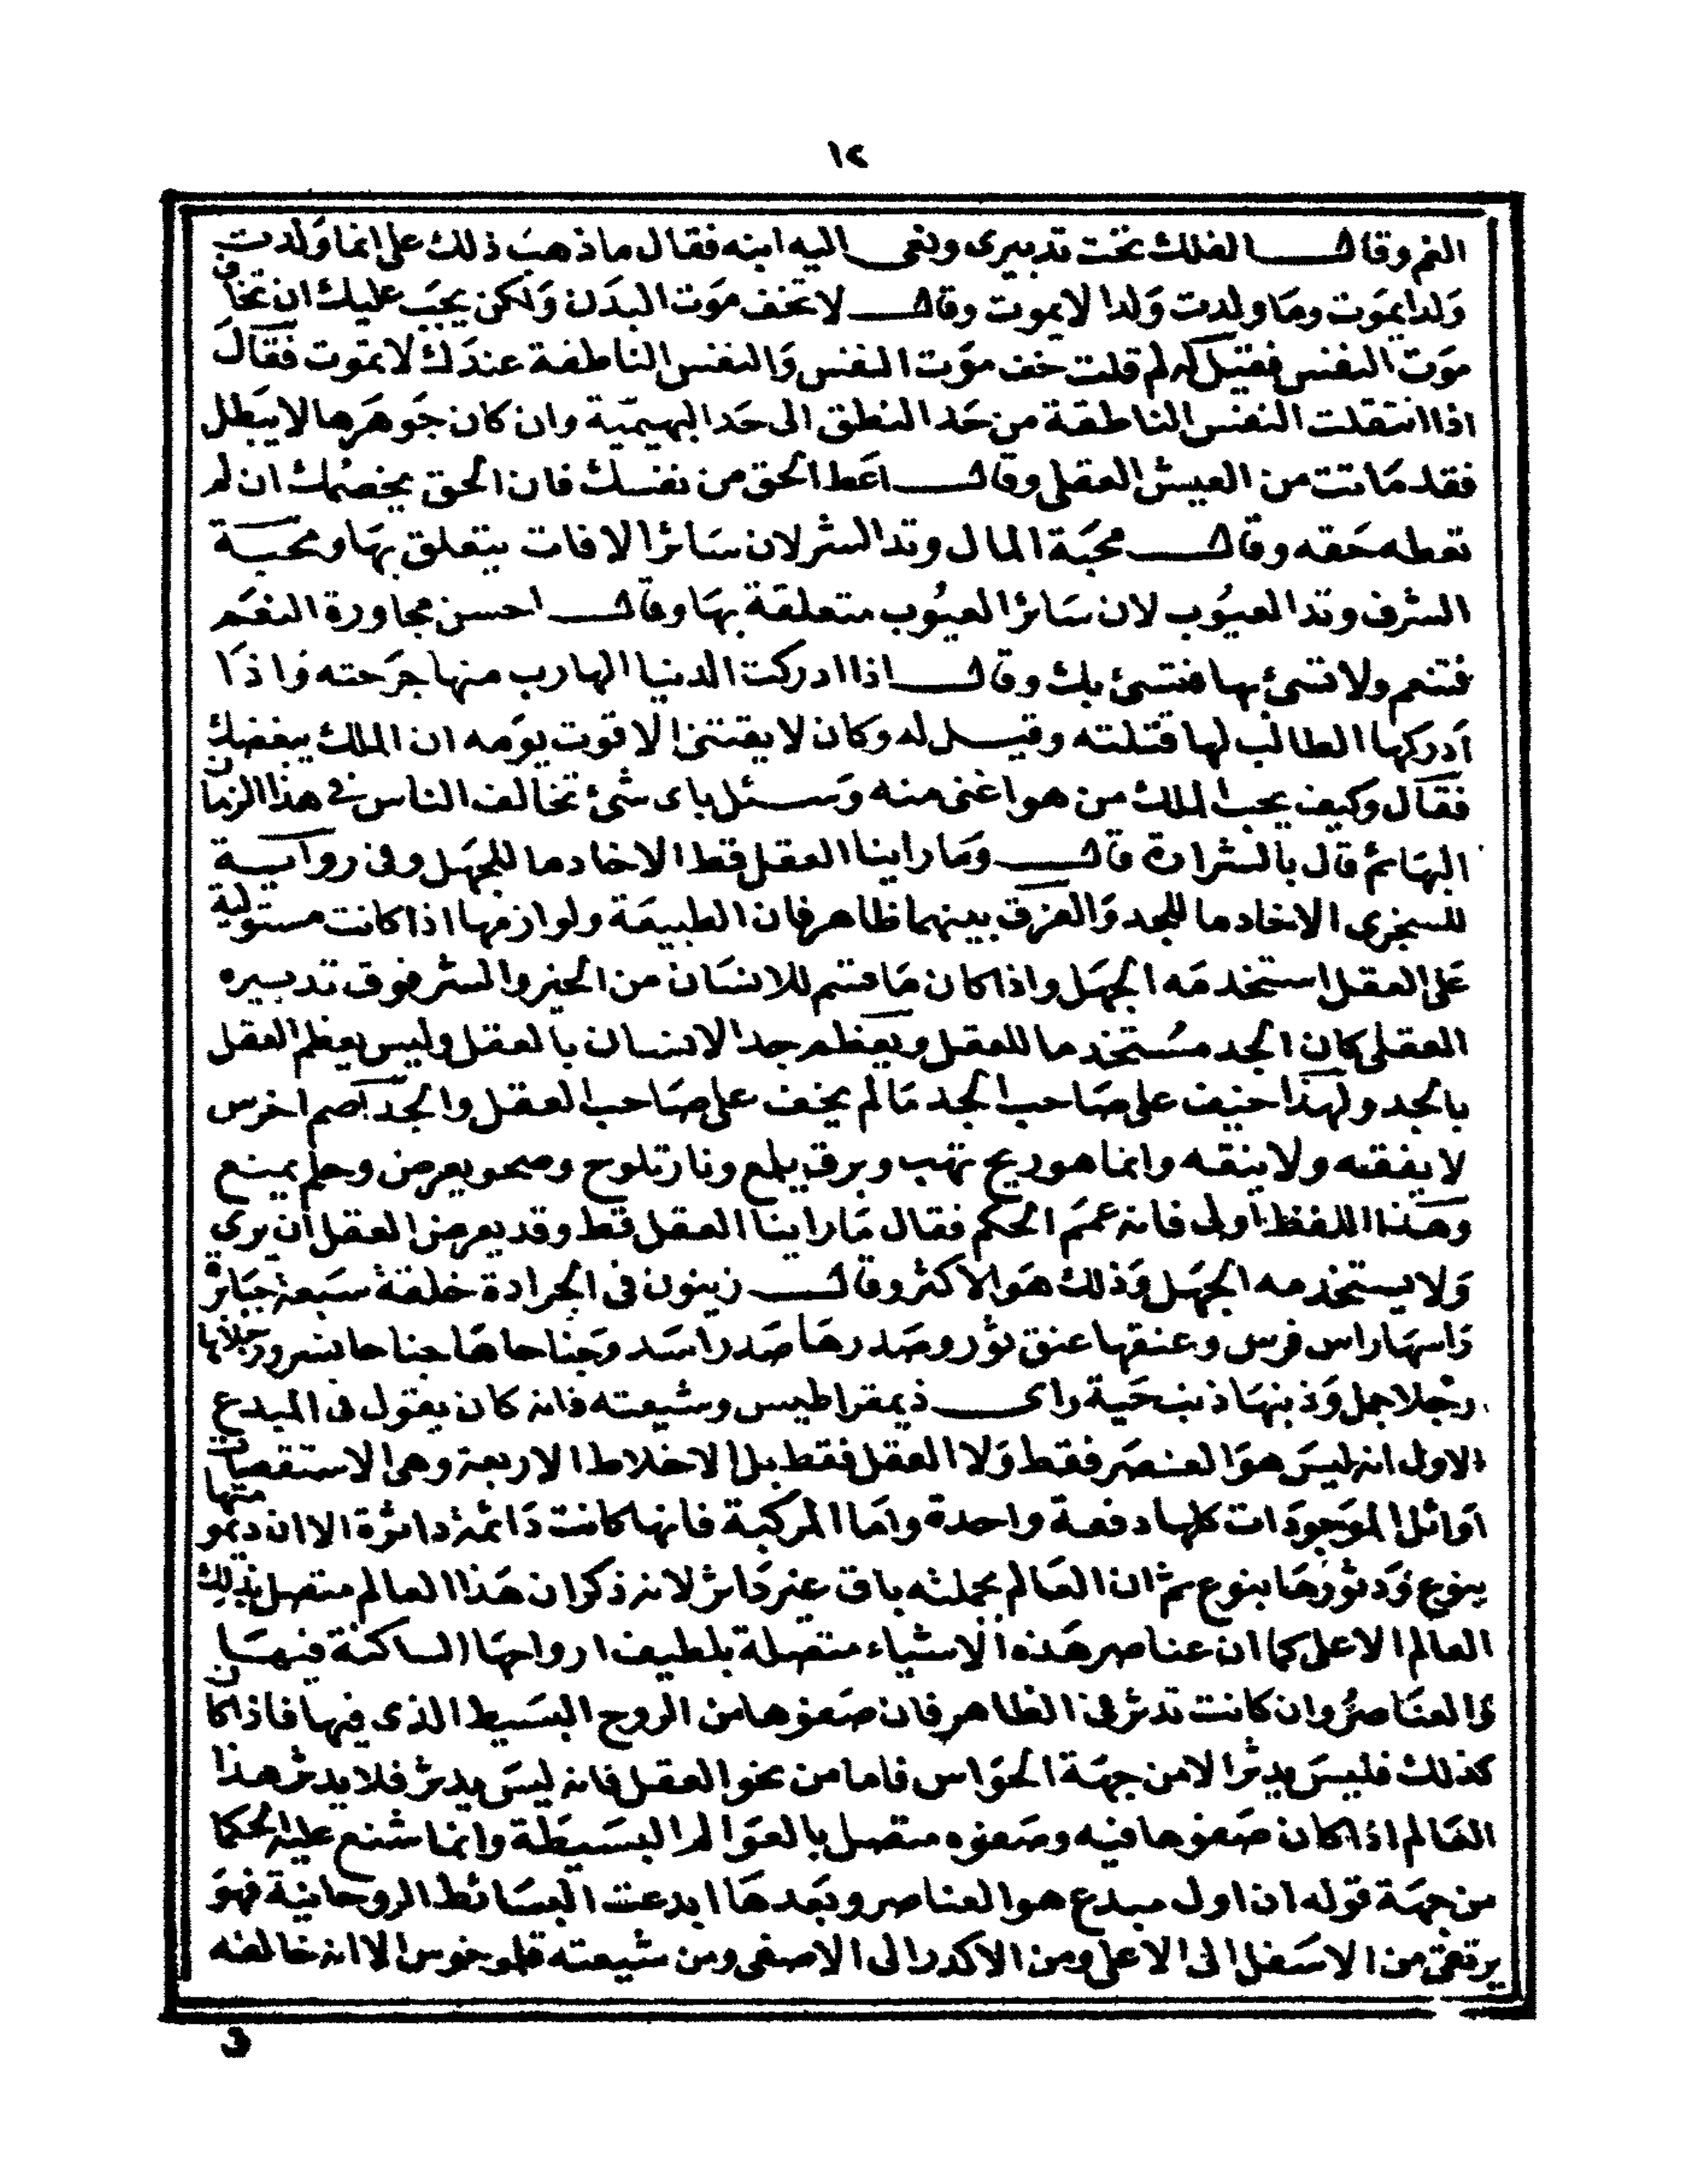 ١٢
الغم وقال الفلك تحت تدبيرى ونعى اليه ابنه فقال ما ذهب ذلك على انما ولدت
ولدا يموت وما ولدت ولدا لا يموت وقال لا تخف موت البدن ولكن يجب عليك ان تخاف
موت النفس فقيل له لم قلت خف موت النفس والنفس الناطقة عندك لا تموت فقال
اذا انتقلت النفس الناطقة من حد النطق الى حد البهيمية وان كان جوهرها لا يبطل
فقد ماتت من العيش العقلى وقال اعط الحق من نفسك فان الحق يخصمك ان لم
تعطه حقه وقال محبة المال وتد الشر لان سائر الافات يتعلق بها ومحبة
الشرف وتد العيوب لان سائر العيوب متعلقة بها وقال احسن مجاورة النعم
فتنعم ولا تسئ بها فتسئ بك وقال اذا ادركت الدنيا الهارب منها جرحته واذا
ادركها الطالب لها قتلته وقيل له وكان لا يقتنى الا قوت يومه ان الملك يبغضك
فقال وكيف يحب الملك من هو اغنى منه وسئل باى شئ تخالف الناس فى هذا الزمان
البهائم قال بالشرارة قال وما راينا العقل قط الا خادما للجهل وفى رواية
للسجزى الا خادما للجد والفرق بينهما ظاهر فان الطبيعة ولوازمها اذا كانت مستولية
على العقل استخدمه الجهل واذا كان ما قسم للانسان من الخير والشر فوق تدبيره
العقلى كان الجد مستخدما للعقل ويعظم جد الانسان بالعقل وليس يعظم العقل
بالجد ولهذا خيف على صاحب الجد ما لم يخف على صاحب العقل والجد اصم اخرس
لا يفقه ولا ينقه وانما هو ريح تهب وبرق يلمع ونار تلوح وصحو يعرض وحلم يمنع
وهذا اللفظ اولى فانه عمم الحكم فقال ما راينا العقل قط وقد يعرض العقل ان يرى
ولا يستخدمه الجهل وذلك هو الاكثر وقال زينون فى الجرادة خلقة سبعة جبابرة
راسها راس فرس وعنقها عنق ثور وصدرها صدر اسد وجناحاها جناحا نسر ورجلاها
رجلا جمل وذنبها ذنب حية راى ذيمقراطيس وشيعته فانه كان يقول فى المبدع
الاول انه ليس هو العنصر فقط ولا العقل فقط بل الاخلاط الاربعة وهى الاستقصات
اوائل الموجودات كلها دفعة واحدة واما المركبة فانها كانت دائمة داثرة الا ان ديمومتها
بنوع ودثورها بنوع ثم ان العالم بجملته باق غير داثر لانه ذكر ان هذا العالم متصل بذلك
العالم الاعلى كما ان عناصر هذه الاشياء متصلة بلطيف ارواحها الساكنة فيها
والعناصر وان كانت تدثر فى الظاهر فان صفوها من الروح البسيط الذى فيها فاذا كان
كذلك فليس يدثر الا من جهة الحواس فاما من نحو العقل فانه ليس يدثر فلا يدثر هذا
العالم اذا كان صفوها فيه وصفوه متصل بالعوالم البسيطة وانما شنع عليه الحكما
من جهة قوله ان اول مبدع هو العناصر وبعدها ابدعت البسائط الروحانية فهو
يرتقى من الاسفل الى الاعلى ومن الاكدر الى الاصفى ومن شيعته قلوخوس الا انه خالفه